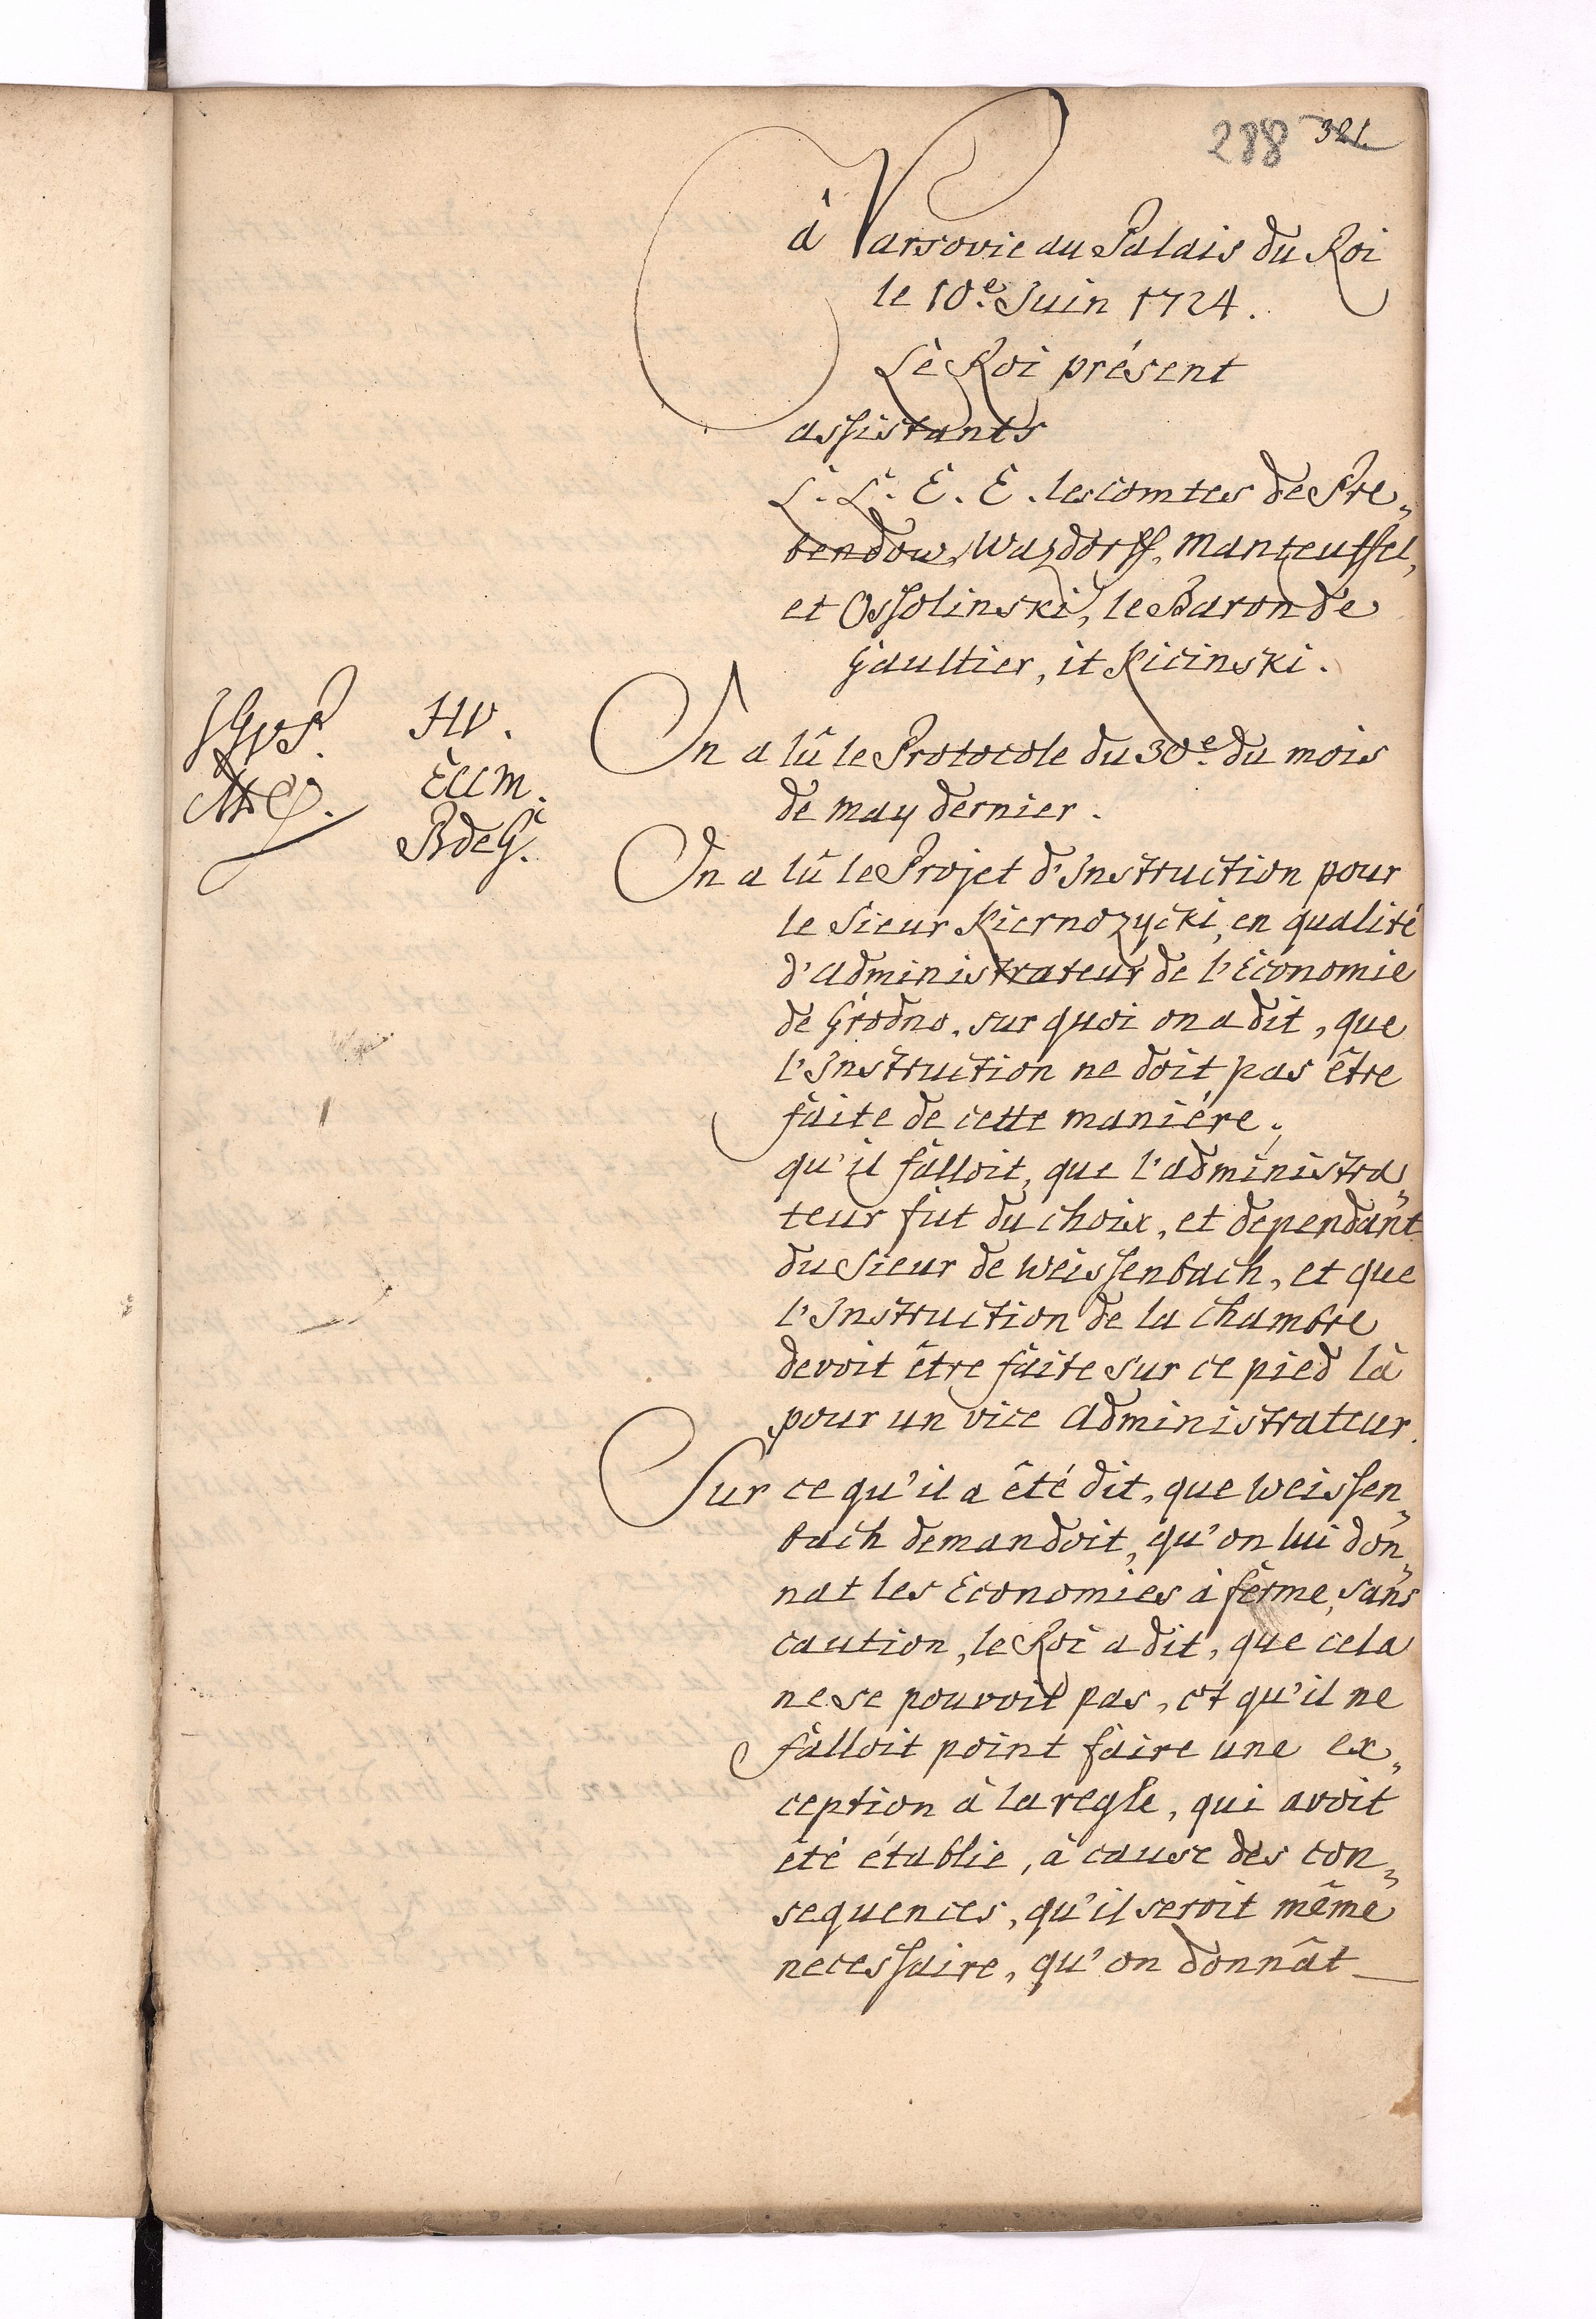 288 321.
à Varsovie au Palais du Roi
le 10.e Juin 1724.
Le Roi présent
assistants
L. L. E. E. les comtes de Pre„
bendow, Wazdorff, Manteuffel,
et Ossolinski, le Baron de
Gaultier, it Kicinski.
HV.
ECCM.
BdeG.
On a lû le Protocole du 30.e du mois
de may dernier.
On a lû le Projet d'Instruction pour
le Sieur Kiernozycki, en qualité
d'administrateur de l'Economie
de Grodno, sur quoi on a dit, que
l'Instruction ne doit pas être
faite de cette maniére;
qu'il falloit, que l'administra„
teur fut du choix, et dependant
du Sieur de Weissenbach, et que
l'Instruction de la Chambre
devoit être faite sur ce pied là
pour un vice administrateur.
Sur ce qu'il a êté dit, que Weissen„
bach demandoit, qu'on lui don„
nat les Economies à ferme, sans
caution, le Roi a dit, que cela
ne se pouvoit pas, et qu'il ne
falloit point faire une ex„
ception à la regle, qui avoit
êté établie, à cause des con„
sequences, qu'il seroit même
necessaire, qu'on donnât